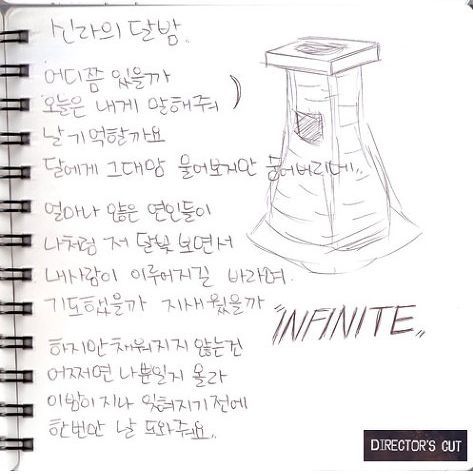 신라의 달밤..
어디쯤 있을까
오늘은 내게 말해줘
날 기억할까요
달에게 그대맘 물어보지만
얼마나 많은 연인들이
나처럼 저 달빛 보면서
내사랑이 이루어지길 바라며.
기도했을까 지새웠을까
"INFINITE„
하지만 채워지지 않는건
어쩌면 나뿐일지 몰라
이밤이 지나 잊혀지기 전에
한번만 날 도와주요..
DIRECTOR'S CUT